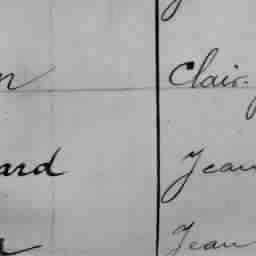 n Clair-
ard Jean
Jean